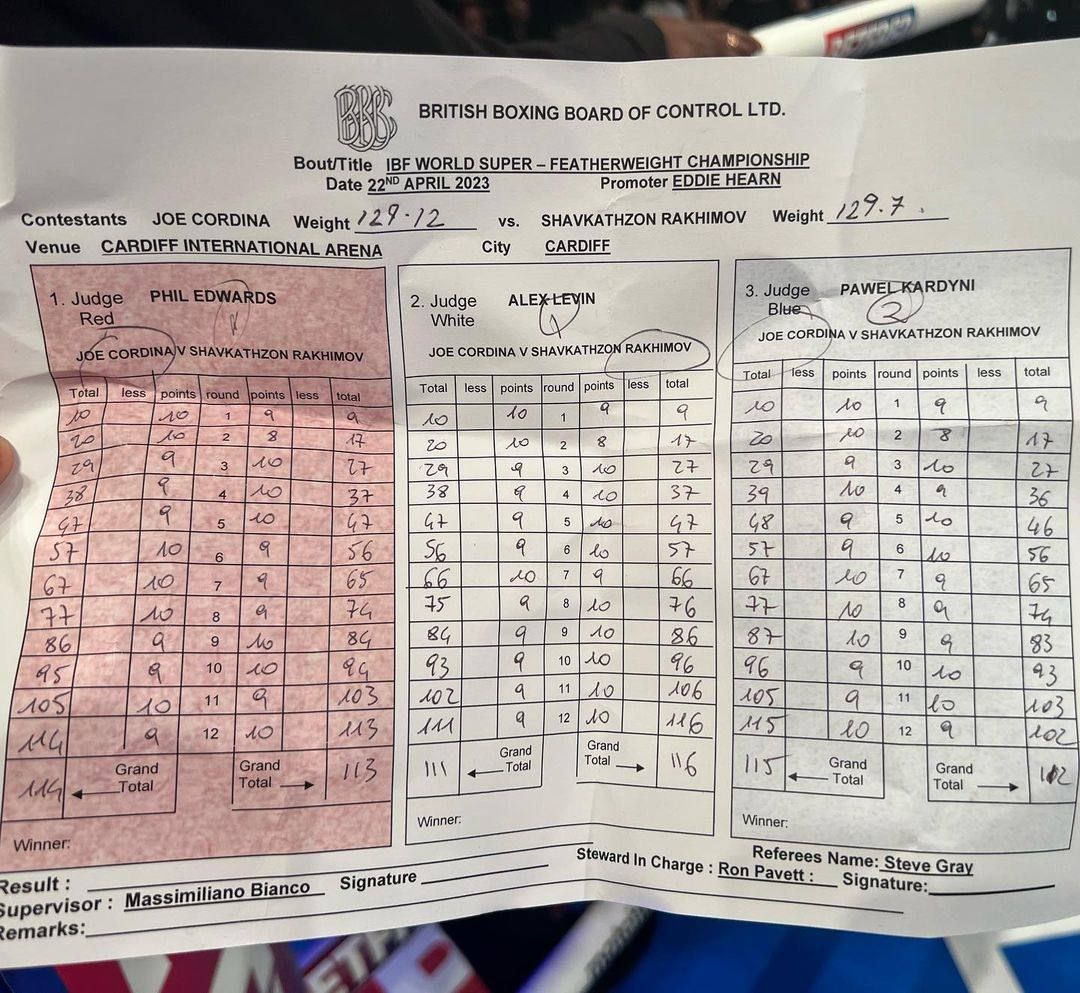 BBBC
BRITISH BOXING BOARD OF CONTROL LTD.
Bout/Title IBF WORLD SUPER – FEATHERWEIGHT CHAMPIONSHIP
Date 22ND APRIL 2023 Promoter EDDIE HEARN
Contestants JOE CORDINA Weight 129.12 vs. SHAVKATHZON RAKHIMOV Weight 129.7.
Venue CARDIFF INTERNATIONAL ARENA City CARDIFF
1. Judge PHIL EDWARDS
Red
JOE CORDINA V SHAVKATHZON RAKHIMOV
Total less points round points less total
10 10 1 9 9
20 10 2 8 17
29 9 3 10 27
38 9 4 10 37
47 9 5 10 47
57 10 6 9 56
67 10 7 9 65
77 10 8 9 74
86 9 9 10 84
95 9 10 10 94
105 10 11 9 103
114 9 12 10 113
114 Grand Total Grand Total 113
Winner:
2. Judge ALEX LEVIN
White 1
JOE CORDINA V SHAVKATHZON RAKHIMOV
Total less points round points less total
10 10 1 9 9
20 10 2 8 17
29 9 3 10 27
38 9 4 10 37
47 9 5 10 47
56 9 6 10 57
66 10 7 9 66
75 9 8 10 76
84 9 9 10 86
93 9 10 10 96
102 9 11 10 106
111 9 12 10 116
111 Grand Total Grand Total 116
Winner:
3. Judge PAWEL KARDYNI
Blue 2
JOE CORDINA V SHAVKATHZON RAKHIMOV
Total less points round points less total
10 10 1 9 9
20 10 2 8 17
29 9 3 10 27
39 10 4 9 36
48 9 5 10 46
57 9 6 10 56
67 10 7 9 65
77 10 8 9 74
87 10 9 9 83
96 9 10 10 93
105 9 11 10 103
115 10 12 9 102
115 Grand Total Grand Total 112
Winner:
Result :
Supervisor : Massimiliano Bianco Signature
Steward In Charge : Ron Pavett :
Referees Name: Steve Gray
Signature:
Remarks: